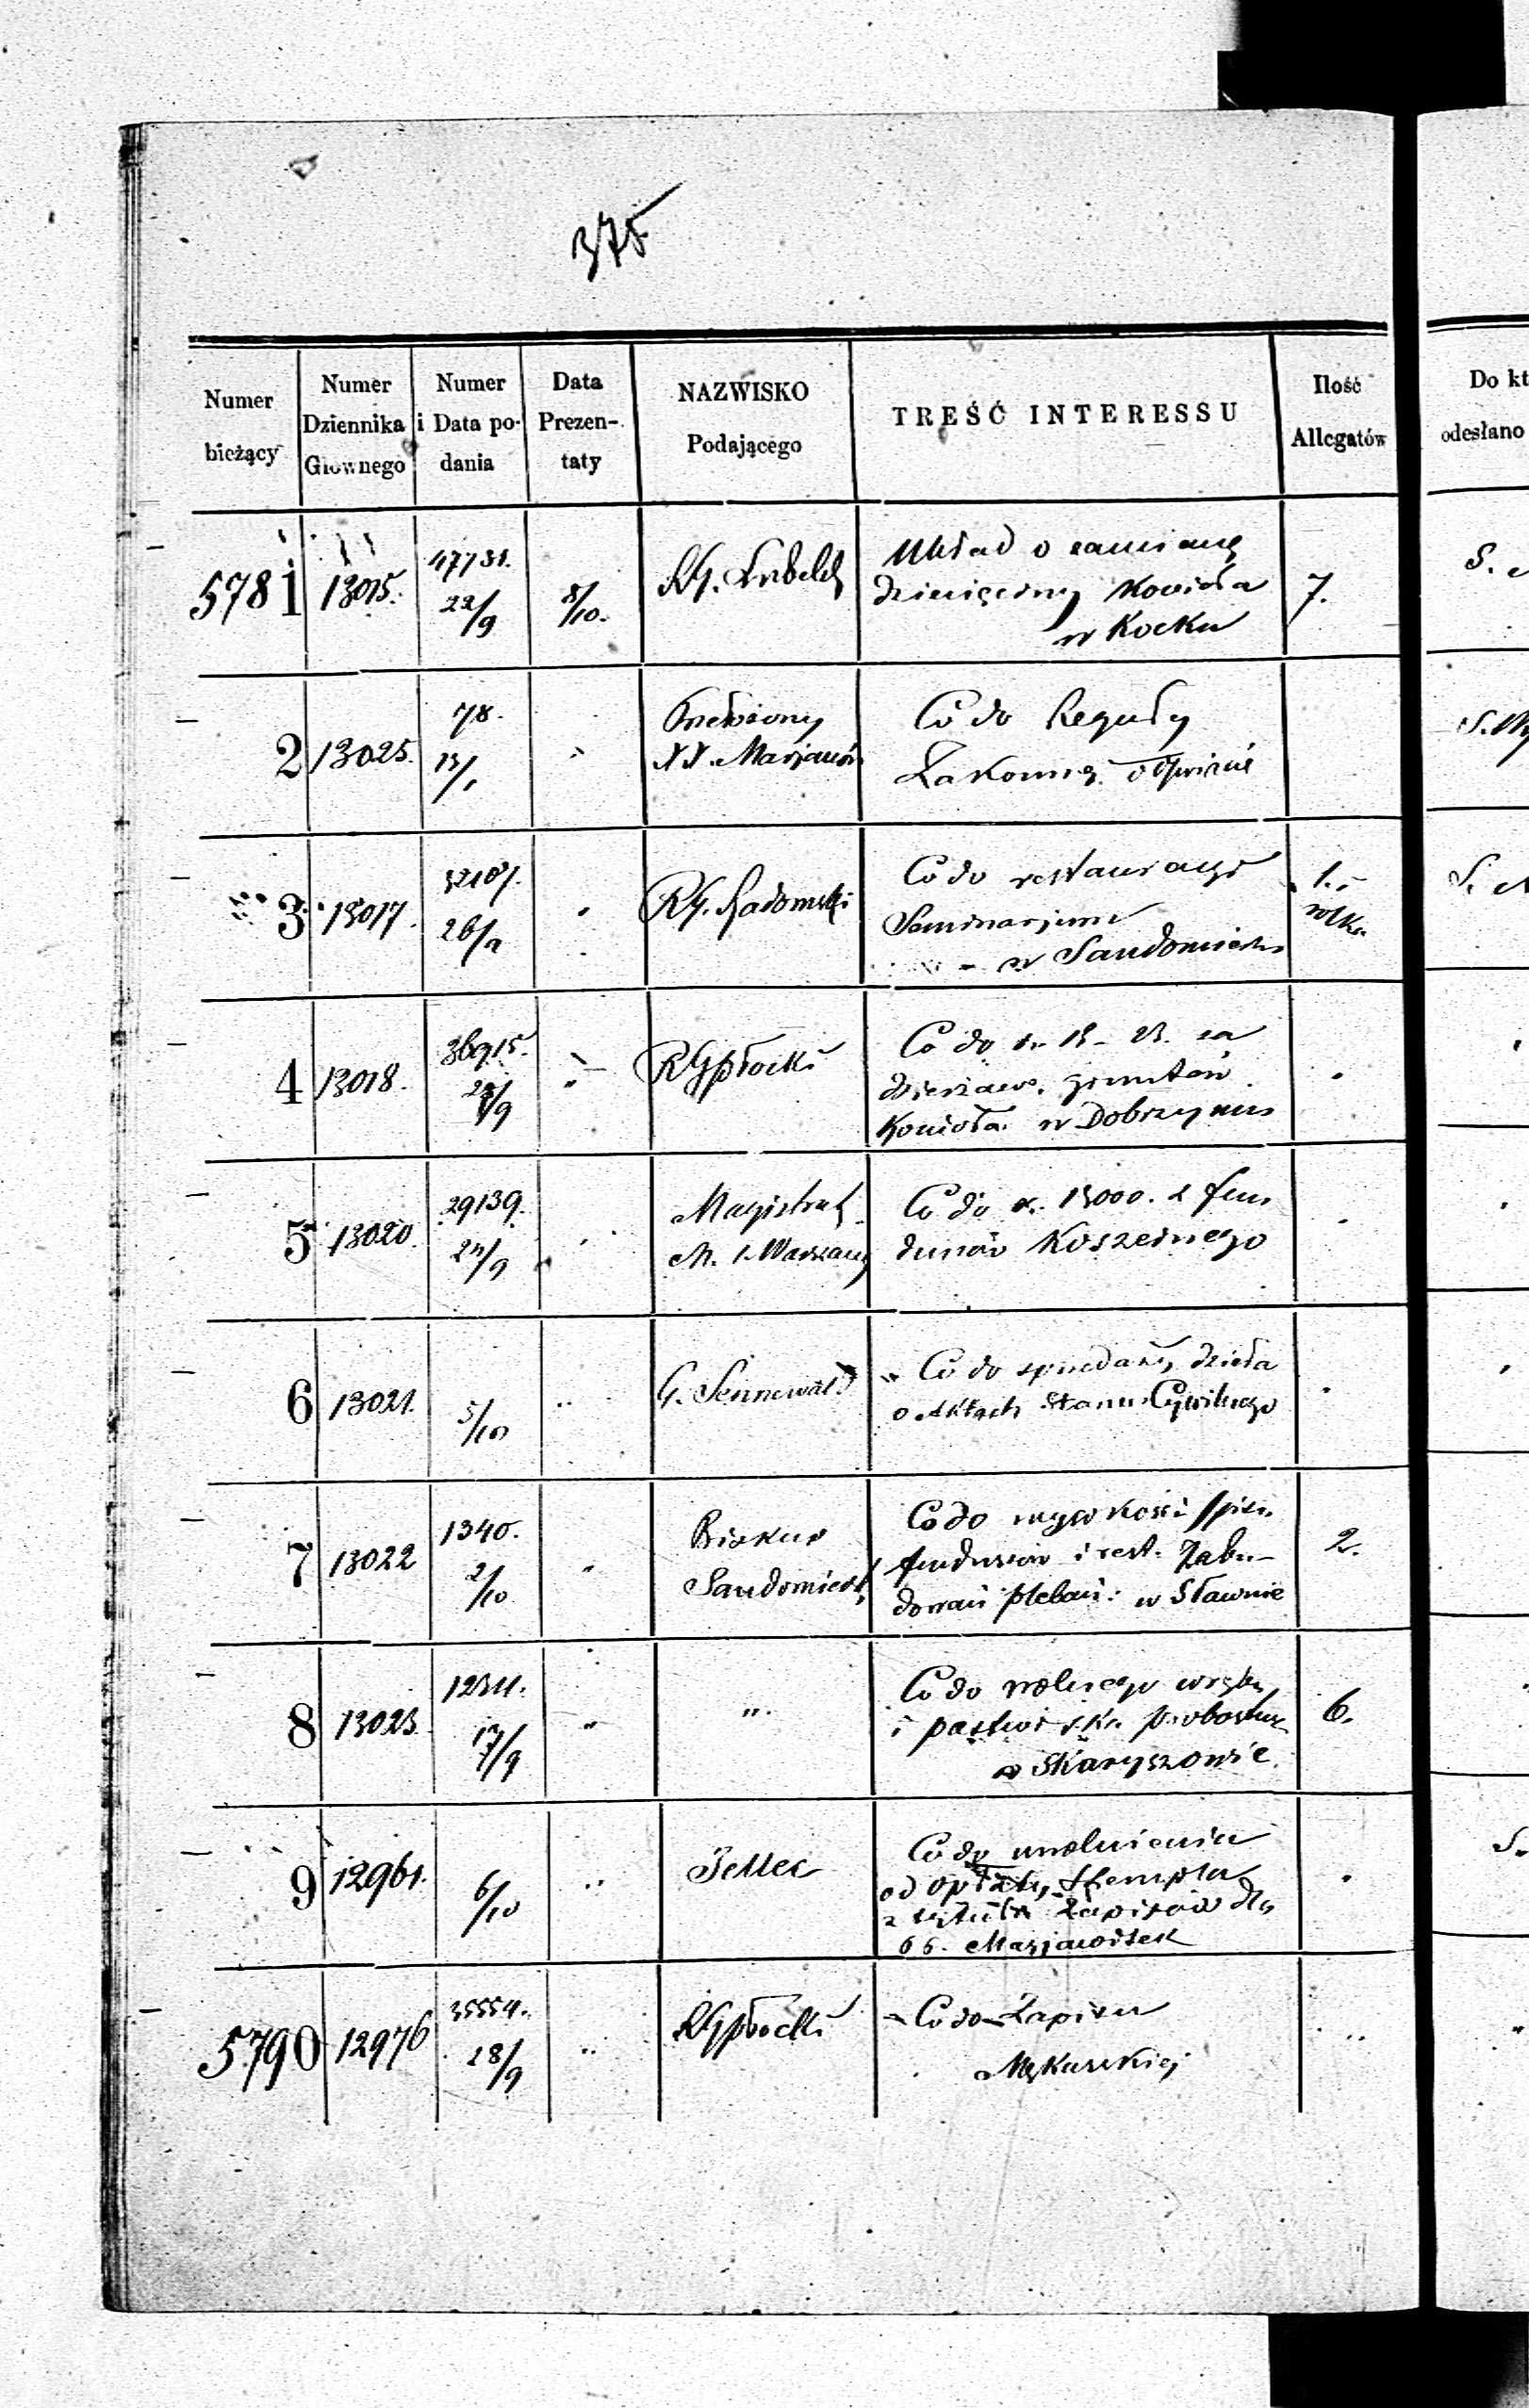 375
Numer bieżący | Numer Dziennika Głównego | Numer i Data podania | Data Prezentaty | NAZWISKO Podającego | TREŚĆ INTERESSU | Ilość Allegatów | Do kt
odesłano
5781 13015. 47731. 22/9 8/10. RG. Lubelsk
Układ o zamianę
dziesięciny Kościoła
w Kocku
7.
S.
2 13025. 78. 13/1 "
XX. Marjanów
Co do Reguły
Zakonnej
3 13017. 26/9 " RG. Radomski
Co do restauracyi
Seminarjum
w Sandomierzu
1.
S.
4 13018. 36915. 23/9 " RG płocki
Co do
dzierżaw. gruntów
Kościoła w Dobrzyniu
5 13020. 29139. 24/9 "
Magistrat
M. S. Warszawy
Co do 15000. z fun
duszów Koszernego
6 13021. 5/10 " G. Sennewald
Co do sprzedaży dzieła
o Aktach Stanu Cywilnego
7 13022 1340. 2/10 "
Biskup
Sandomiersk
Co do wysokości
funduszów i rest. Zabu-
dowań plebań: w Sławnie
2.
8 13023. 17/9 " "
Co do wolnego wrębu
i pastwiska probostwa
w Skaryszowie
6.
9 12961. 6/10 "
Co do uwolnienia
od opłaty stempla
z tytułu Zapisów dla
66. Marjawitek
S.
5790 12976 35554. 28/9 " RG płocki
Co do Zapisu